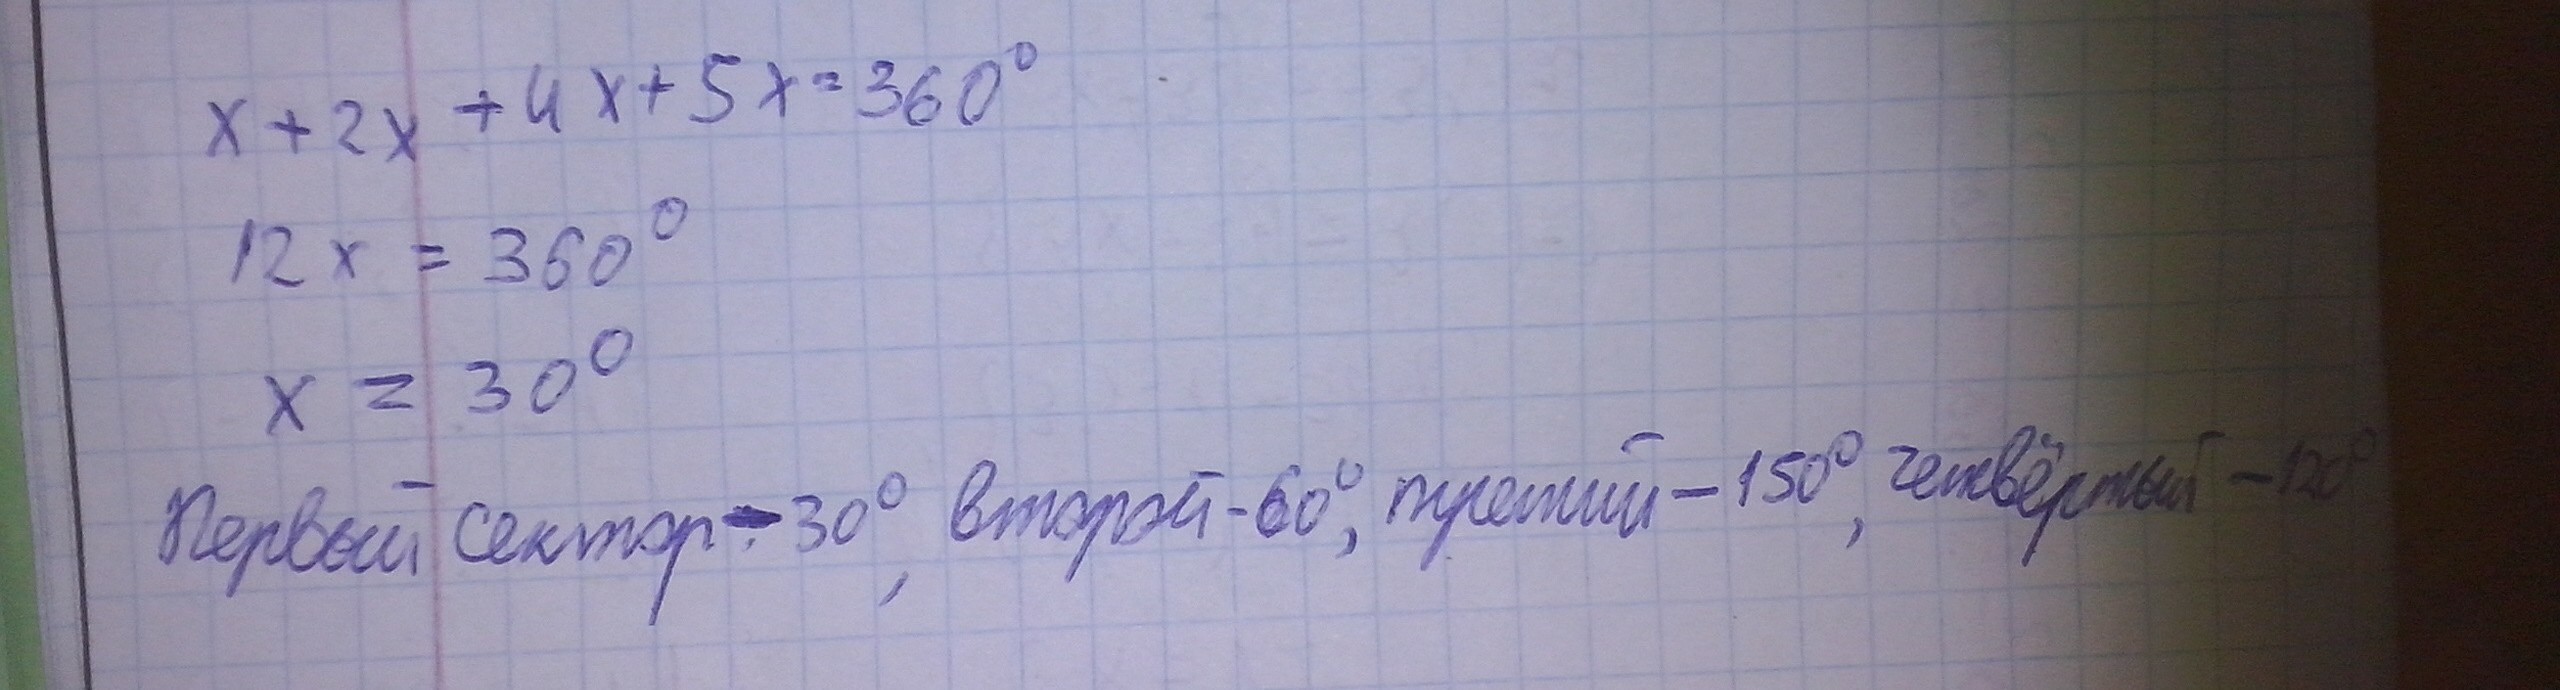 x + 2x + 4x + 5x = 360°
12x = 360°
x = 30°
Первый сектор - 30°, второй - 60°, третий - 150°, четвёртый - 120°